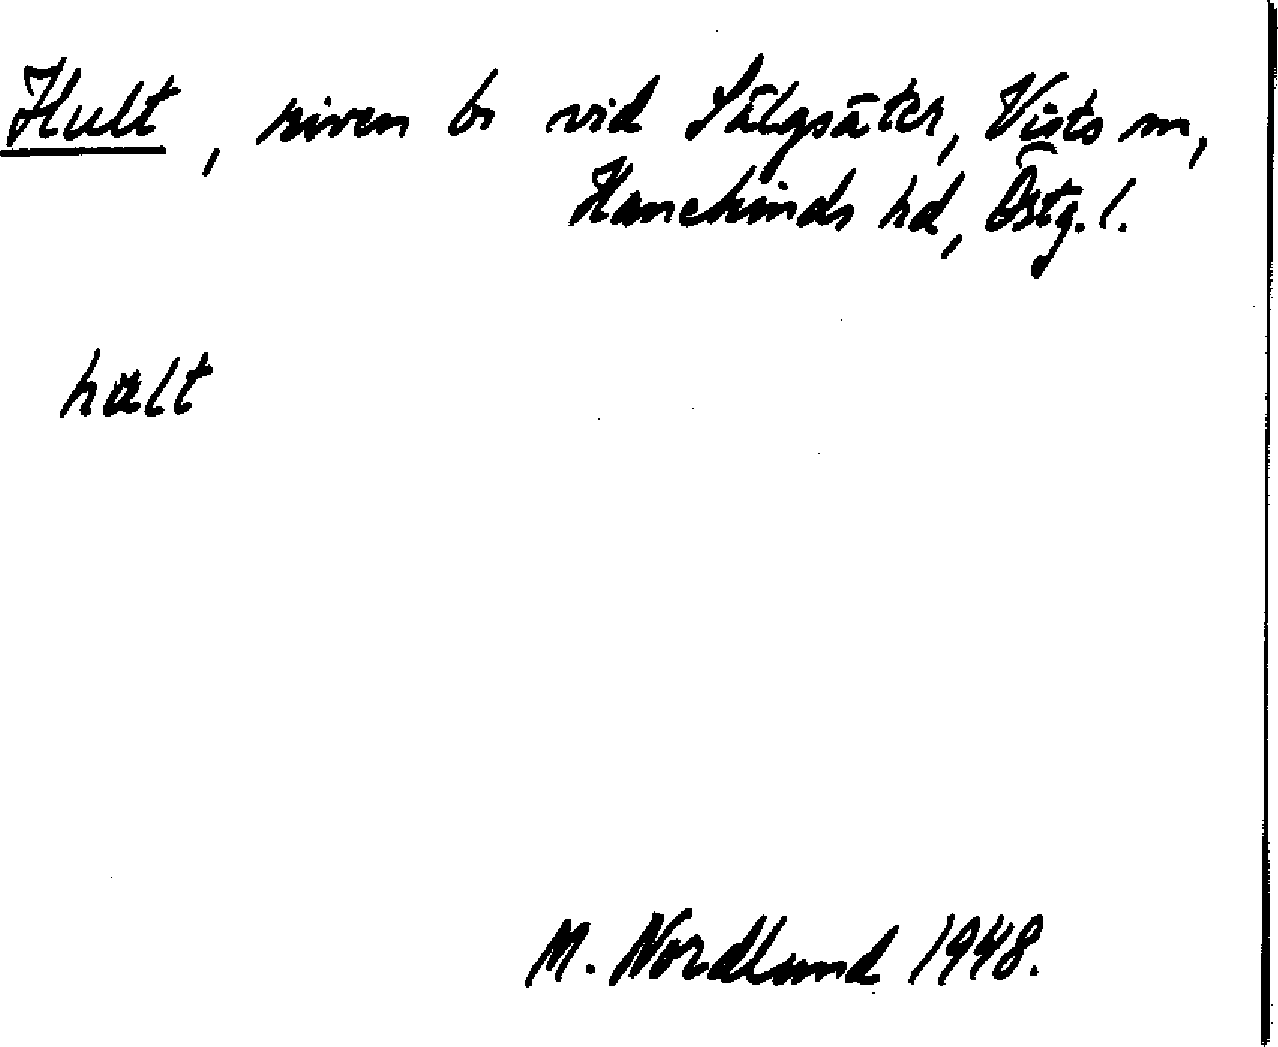 Hult, riven b. vid Sälgsäter, Vists sn,
Hanekinds hd, Östg. l.
hult
M. Nordlund 1948.